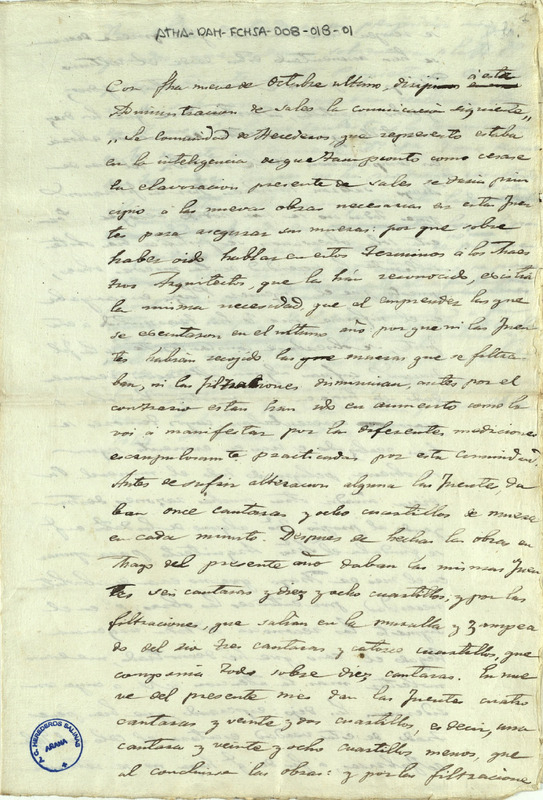 ATHA-DAH-FCHSA-008-018-01
Con fha nueve de Octubre ultimo, diriji a esta
Administracion de sales la comunicacion siguiente,,
,,La Comunidad de Herederos, que represento estaba
en la inteligencia, de que tan pronto como cesase
la elavoracion presente de sales se daria prin
cipio á las nuevas obras necesarias en estas fuen
tes para asegurar sus mueras: por que sobre
haber oido hablar en estos terminos á los Maes
tros Arquitectos, que la han reconocido, existia
la misma necesidad, que al emprender las que
se ejecutaron en el ultimo año por que ni las fuen
tes habian recojido las mueras que se filtra
ban, ni las filtraciones disminuian, antes por el
contrario estas han ido en aumento como la
voi á manifestar por las diferentes mediciones
escrupulosamte practicadas por esta comunidad.
Antes de sufrir alteracion alguna las fuentes, da
ban once cantaras y ocho cuartillos de muera
en cada minuto. Despues de hechas las obras en
Mayo del presente año daban las mismas fuen
tes seis cantaras y diez y ocho cuartillos, y por las
filtraciones, que salian en la muralla y
do del rio tres cantaras y catorce cuartillos, que
componia todo sobre diez cantaras. En nue
ve del presente mes dan las fuentes cuatro
cantaras y veinte y dos cuartillos, es decir, una
cantara y veinte y ocho cuartillos menos, que
al concluirse las obras: y por las filtraciones
A.C. HEREDEROS SALINAS
AÑANA